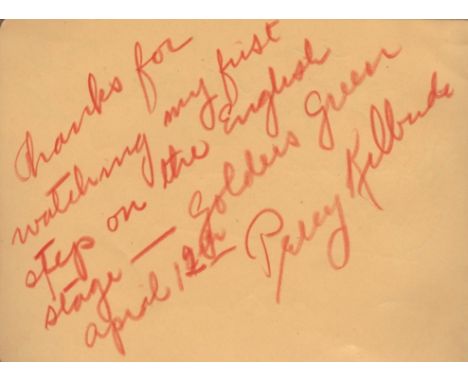 thanks for
watching my first
step on the English
stage — Golders Green
april 12th Percy Kilbride